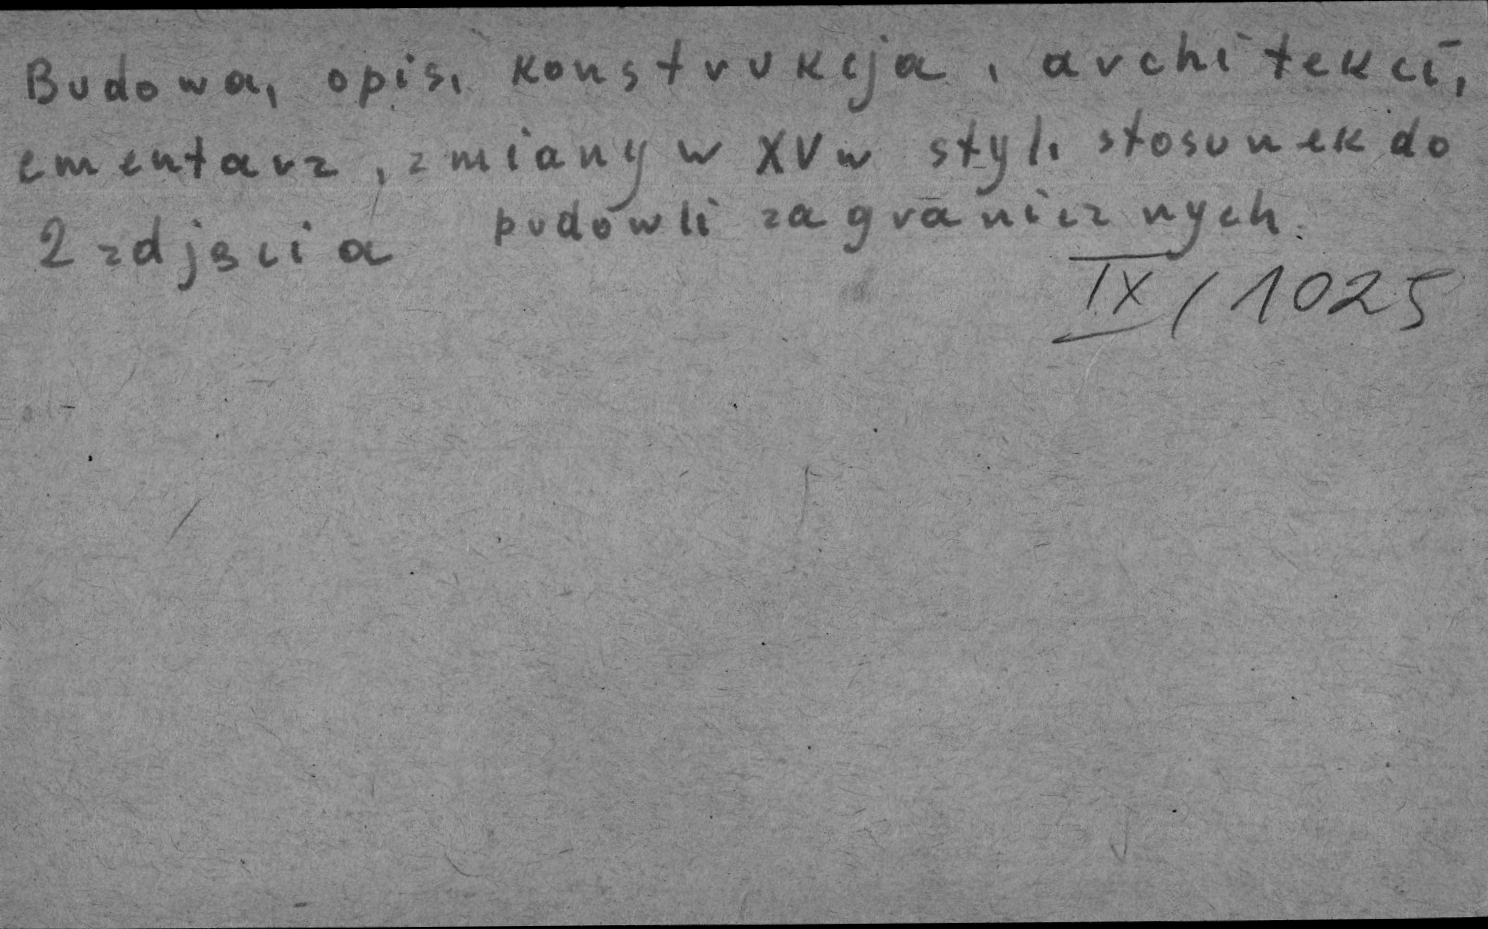 Budowa, opis, konstrukcja, architekci,
cmentarz, zmiany w XV w styl, stosunek do
budowli zagranicznych.
2 zdjęcia
IX/1025